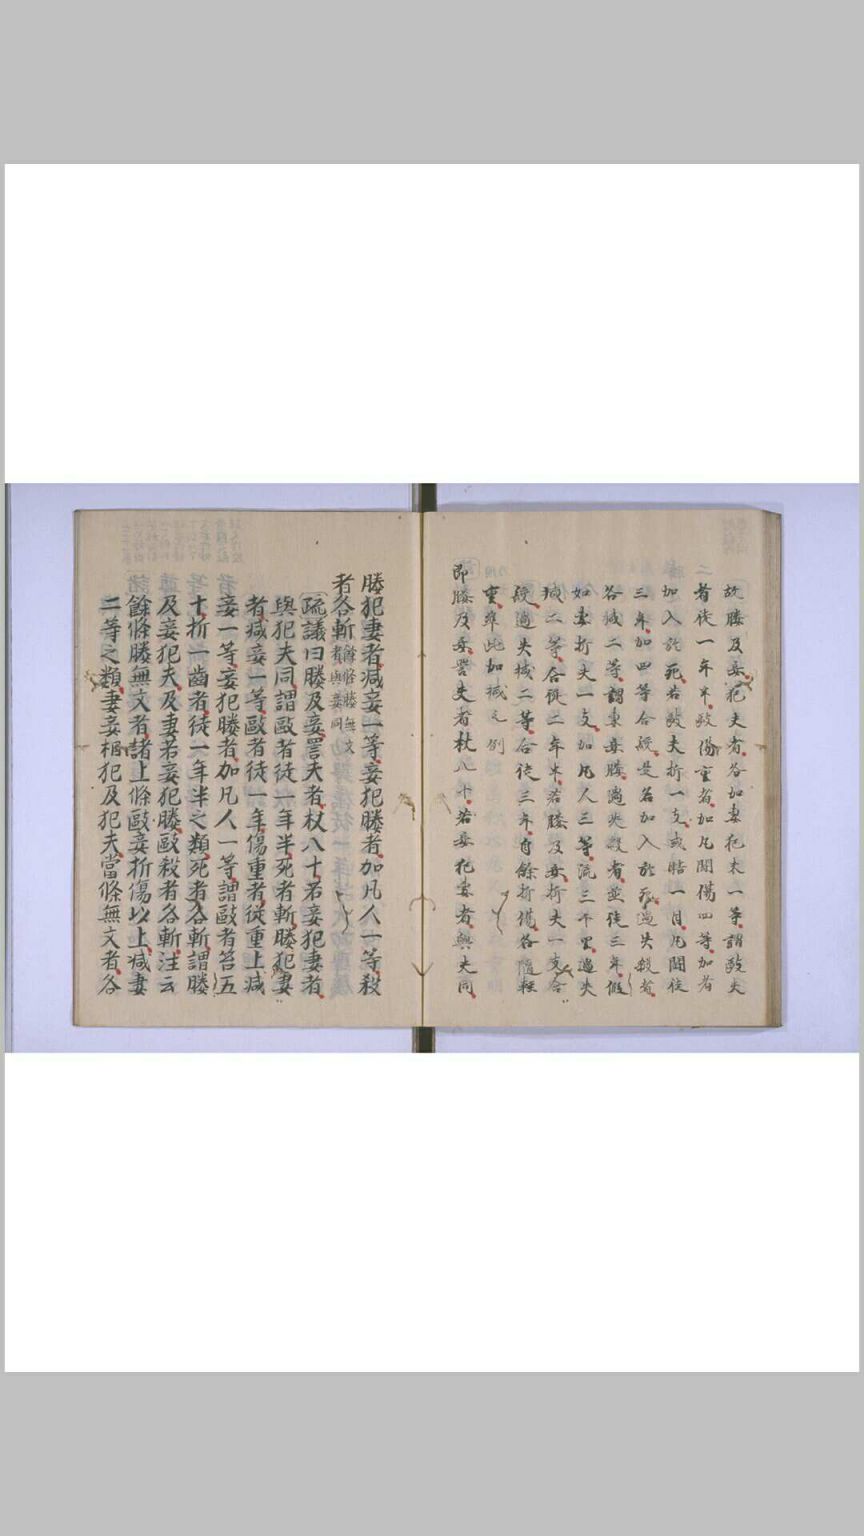 故媵及妾犯夫者各加妻犯夫一等謂毆夫
者徒一年半毆傷重者加凡鬪傷四等加者
加入於死若毆夫折一支或瞎一目凡鬪徒
三年加四等合絞是名加入於死過失殺者
各減二等謂妻妾媵過失殺者並徒三年假
如妻折夫一支加凡人三等流三千里過失
減二等合徒二年半若媵及妾折夫一支合
絞過失減二等合徒三年自餘折傷各隨輕
重準此加減之例
即媵及妾詈夫者杖八十若妾犯妻者與夫同
媵犯妻者減妾一等妾犯媵者加凡人一等殺
者各斬餘條媵無文
者與妾同
疏議曰媵及妾詈夫者杖八十若妾犯妻者
與犯夫同謂毆者徒一年半死者斬媵犯妻
者減妾一等毆者徒一年傷重者從重上減
妾一等妾犯媵者加凡人一等謂毆者笞五
十折一齒者徒一年半之類死者各斬謂媵
及妾犯夫及妻若妾犯媵毆殺者各斬注云
餘條媵無文者諸上條毆妾折傷以上減妻
二等之類妻妾相犯及犯夫當條無文者各